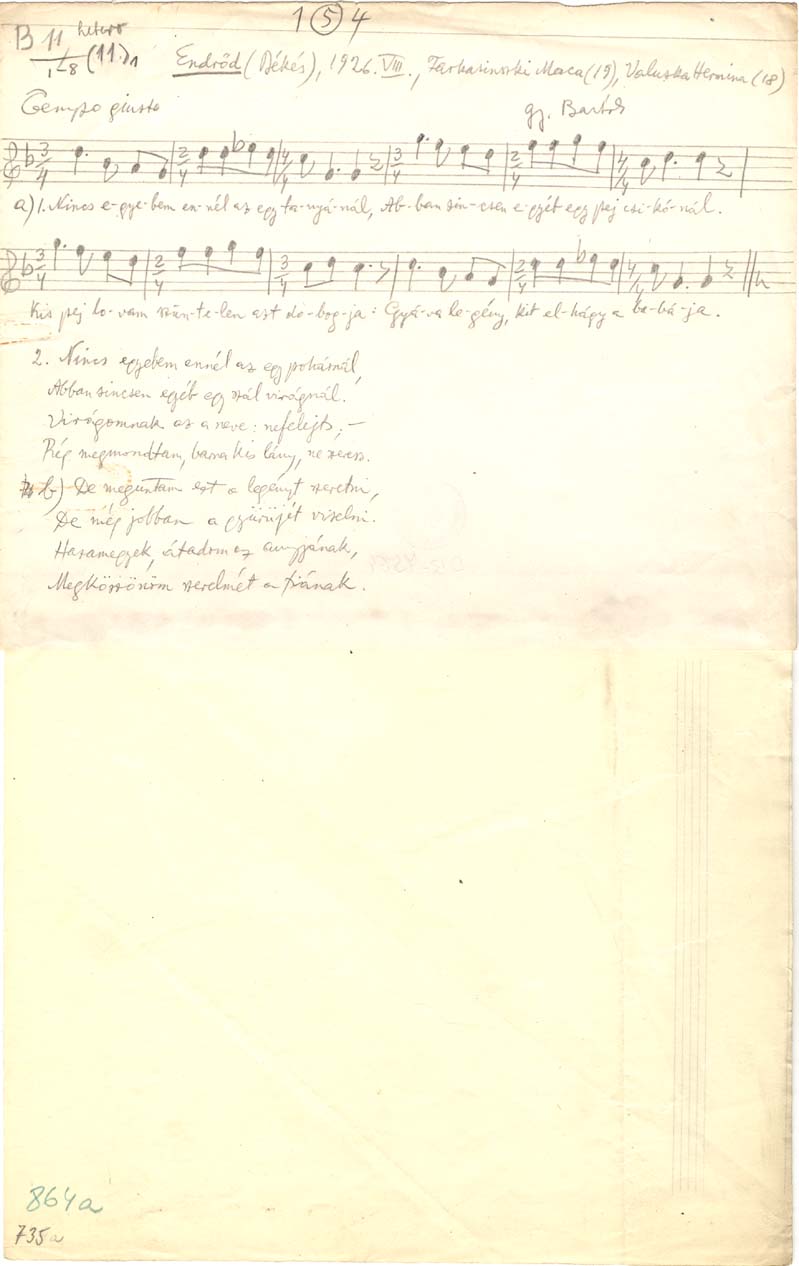 1 ⑤ 4
B 11 hetero
1-8 (11.)1
Endrőd (Békés), 1926. VIII., Farkasinszki Maca (19), Valuska Hermina (18)
Tempo giusto
gy. Bartók
a) 1. Nincs e-gye-bem en-nél az egy ta-nyá-nál, Ab-ban sin-csen e-gyéb egy pej csi-kó-nál.
Kis pej lo-vam szün-te-len azt do-bog-ja: Gyá-va le-gény, kit el-hágy a ba-bá-ja.
2. Nincs egyebem ennél az egy pohárnál,
Abban sincsen egyéb egy szál virágnál.
Virágomnak az a neve: nefelejts, —
Rég megmondtam, barna kis lány, ne szeress.
b) De meguntam ezt a legényt szeretni,
De még jobban a gyürüjét viselni.
Hazamegyek, átadom az annyjának,
Megköszönöm szerelmét a fiának.
864a
735a